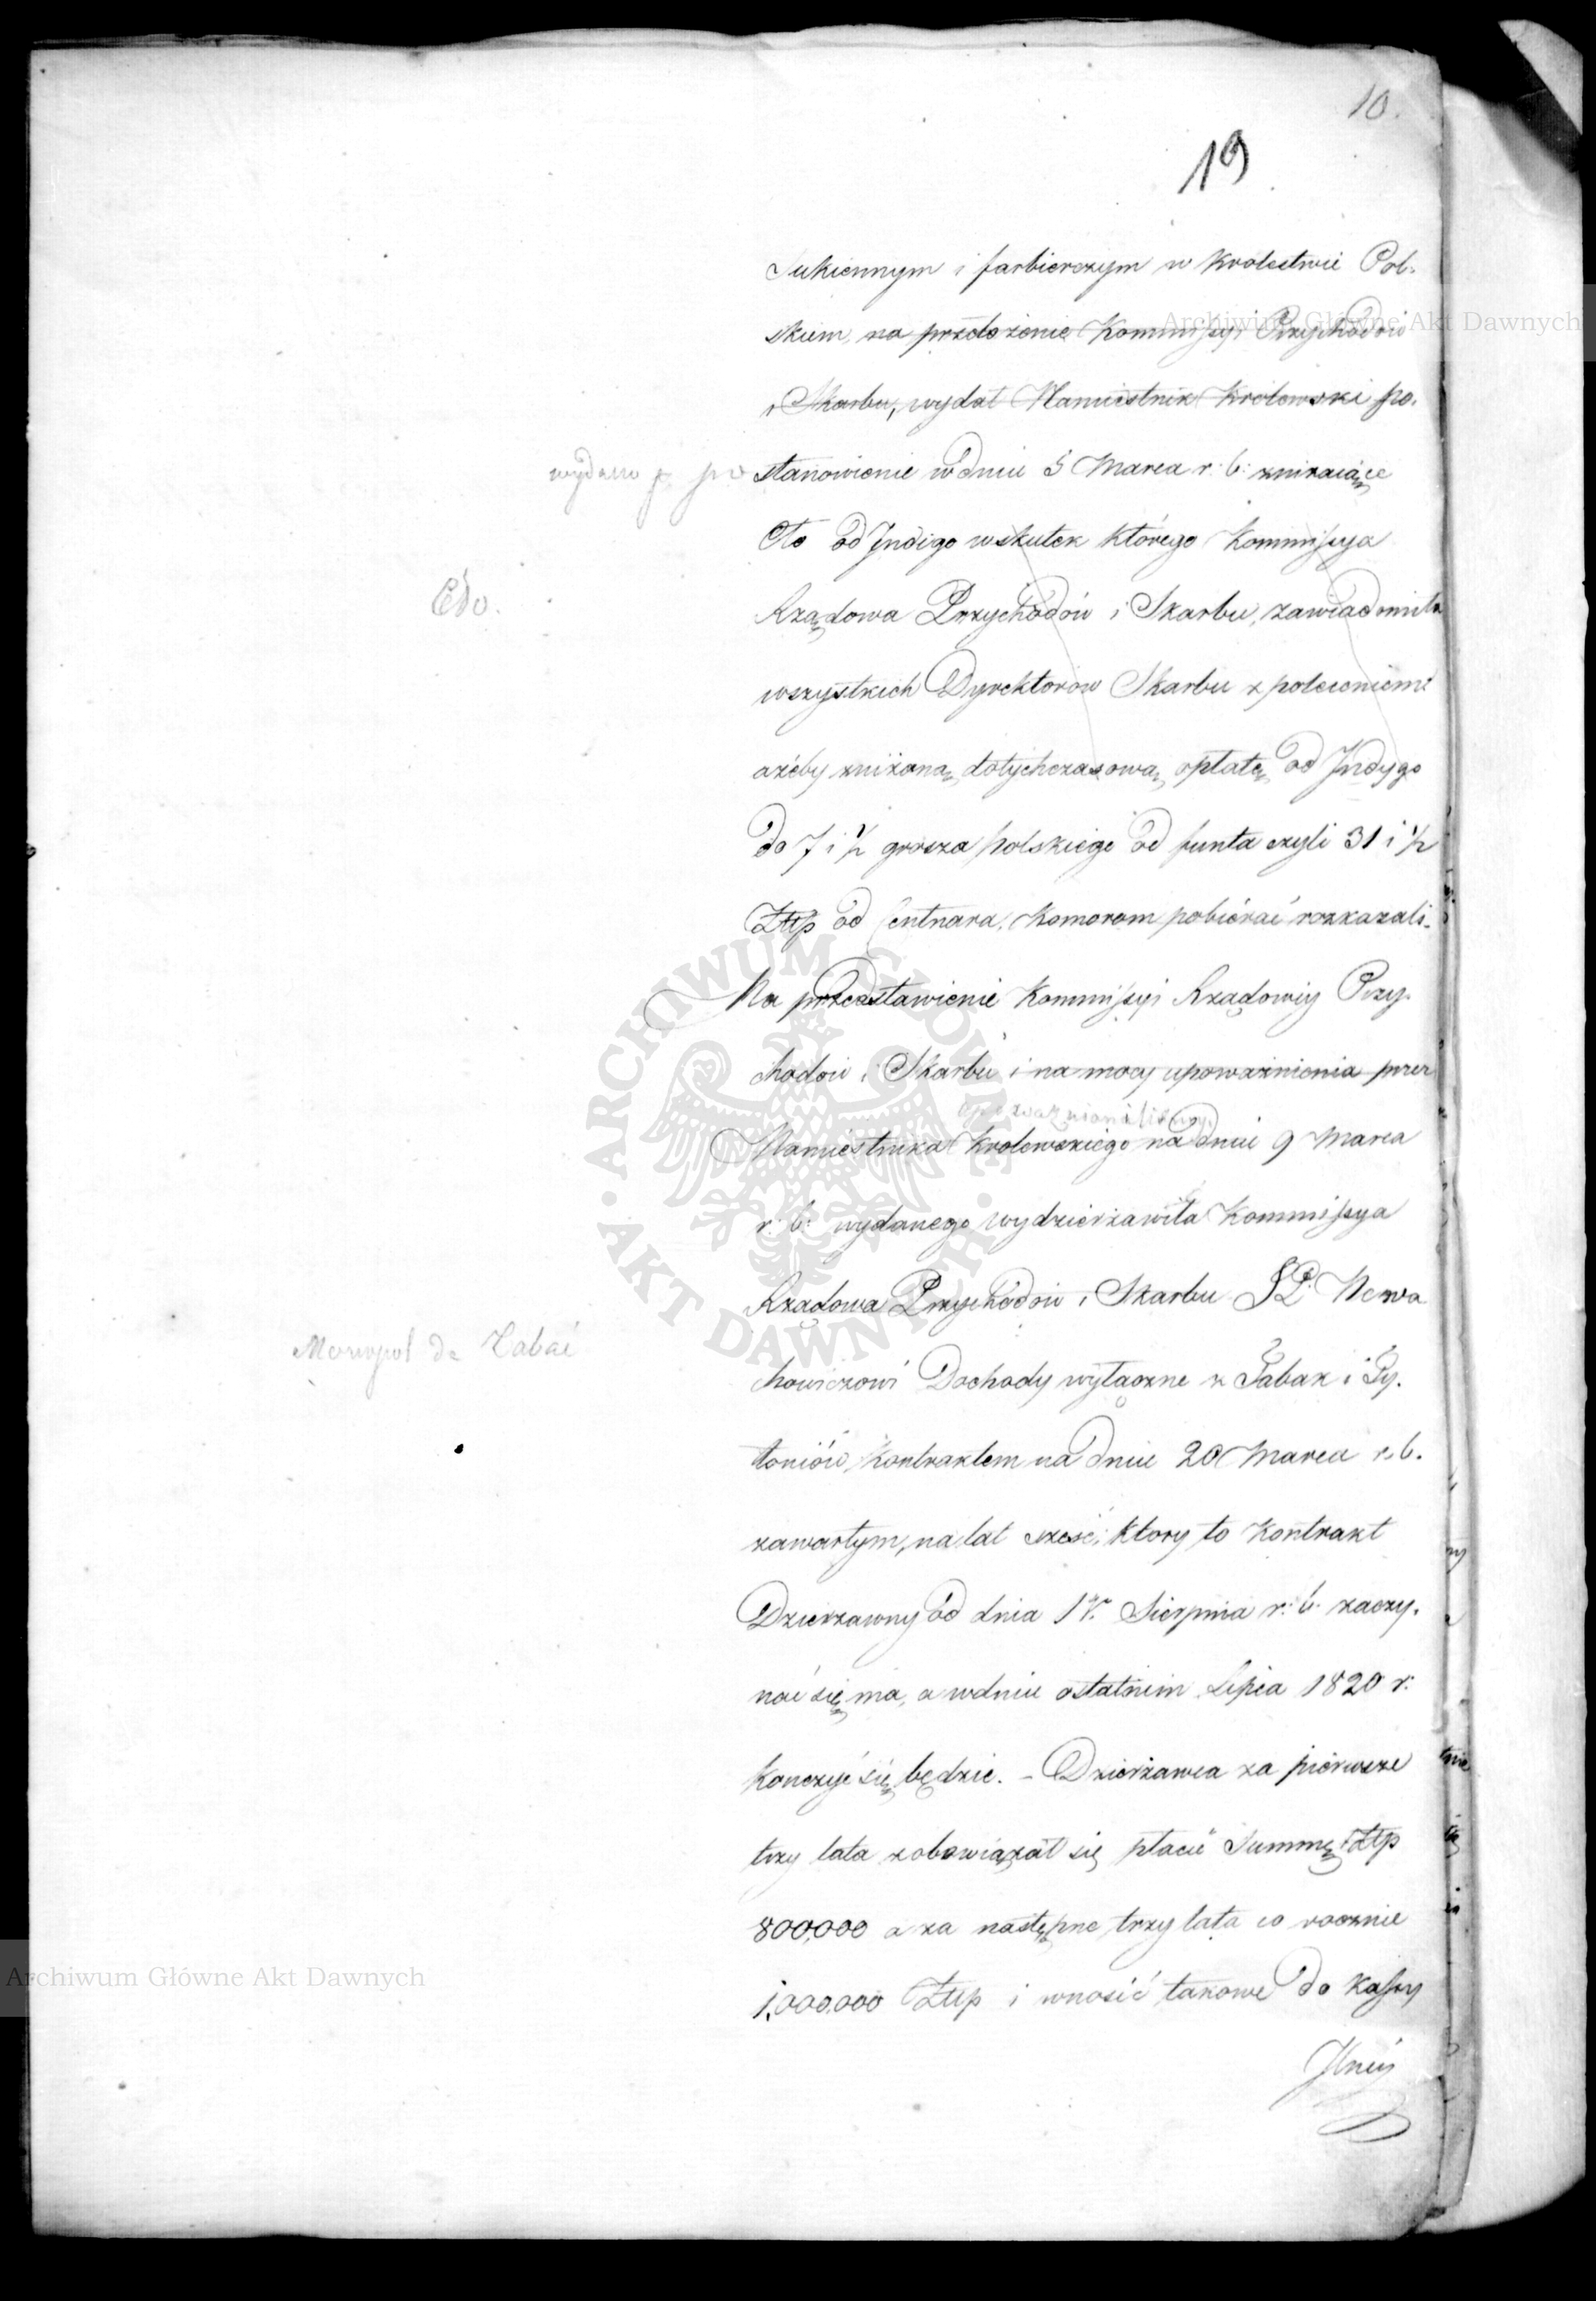 10.
19
Sukiennym i farbierczym w Królestwie Pol-
skiem, na przełożenie Kommissyi Przychodów
i Skarbu, wydał Namiestnik Królewski po-
wydano po
stanowienie w dniu 5 Marca r: b: zniżaiące
Cło od Indigo wskutek którego Kommissya
Cło.
Rządowa Przychodów i Skarbu, zawiadomiła
wszystkich Dyrektorów Skarbu z poleceniem
ażeby zniżoną dotychczasową opłatę od Indygo
do 7 i 1/2 grosza polskiego od funta czyli 31 i 1/2
Złtp od Centnara, Komorom pobiérać rozkazali.
Na przedstawienie Kommissyi Rządowéy Przy-
chodów i Skarbu i na mocy upoważnienia przez
Namiestnika Królewskiego na dniu 9 Marca
r: b: wydanego wydzierżawiła Kommissya
Rządowa Przychodów i Skarbu JP. Newa
Monopol
chowiczowi Dochody wyłączne z Tabak i Ty-
toniów, Kontraktem na dniu 20 Marca r. b.
zawartym, na lat sześć, który to Kontrakt
Dzierżawny od dnia 1 Sierpnia r: b: zaczy-
nać się ma, a w dniu ostatnim Lipca 1820 r:
kończyć się będzie. - Dzierżawca za piérwsze
trzy lata zobowiązał się płacić Summę Złtp
800,000 a za następne trzy lata co rocznie
1,000,000 Złtp i wnosić takowe do Kassy